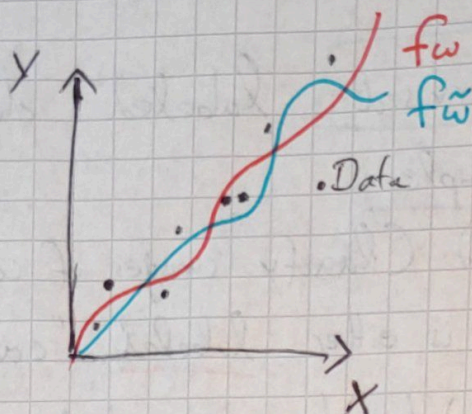 Y
fω
fω̃
.Data
X